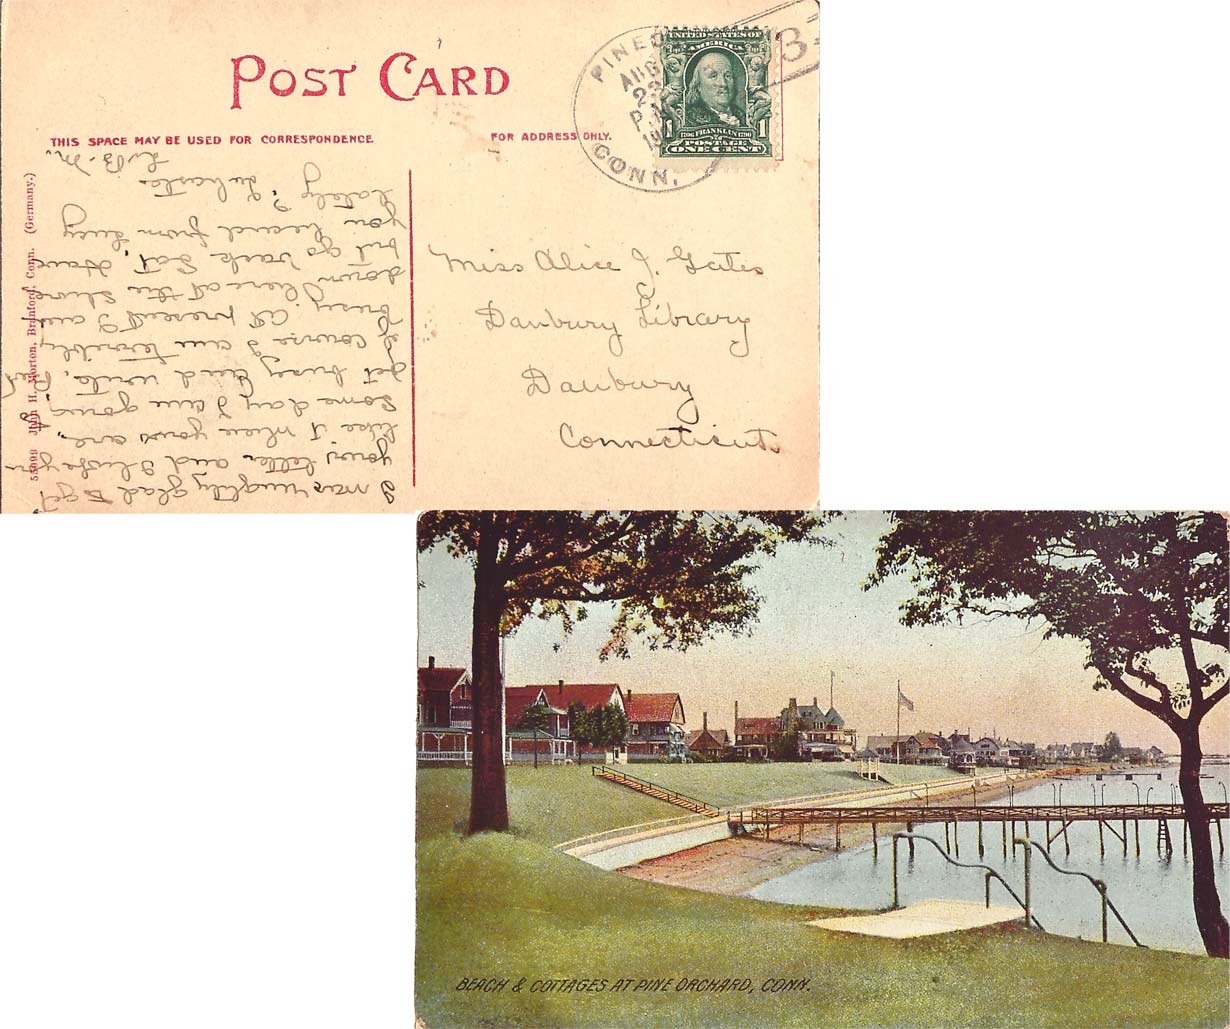 POST CARD
THIS SPACE MAY BE USED FOR CORRESPONDENCE
FOR ADDRESS ONLY.
PINE
AUG
CONN.
UNITED STATES OF
AMERICA
1706 FRANKLIN 1790
1 1
POSTAGE
ONE CENT
55098 John H. Morton, Branford, Conn. (Germany.)
I was mighty glad to get
your letter and I hope you
like it where you are.
Some day I am going to
get busy and write. But
of course I am terribly
busy. At present I am
down here at the shore
but go back Sat. Have
you heard from Lucy
lately?
L. B. M.
Miss Alice J. Gates
Danbury Library
Danbury
Connecticut
BEACH & COTTAGES AT PINE ORCHARD, CONN.